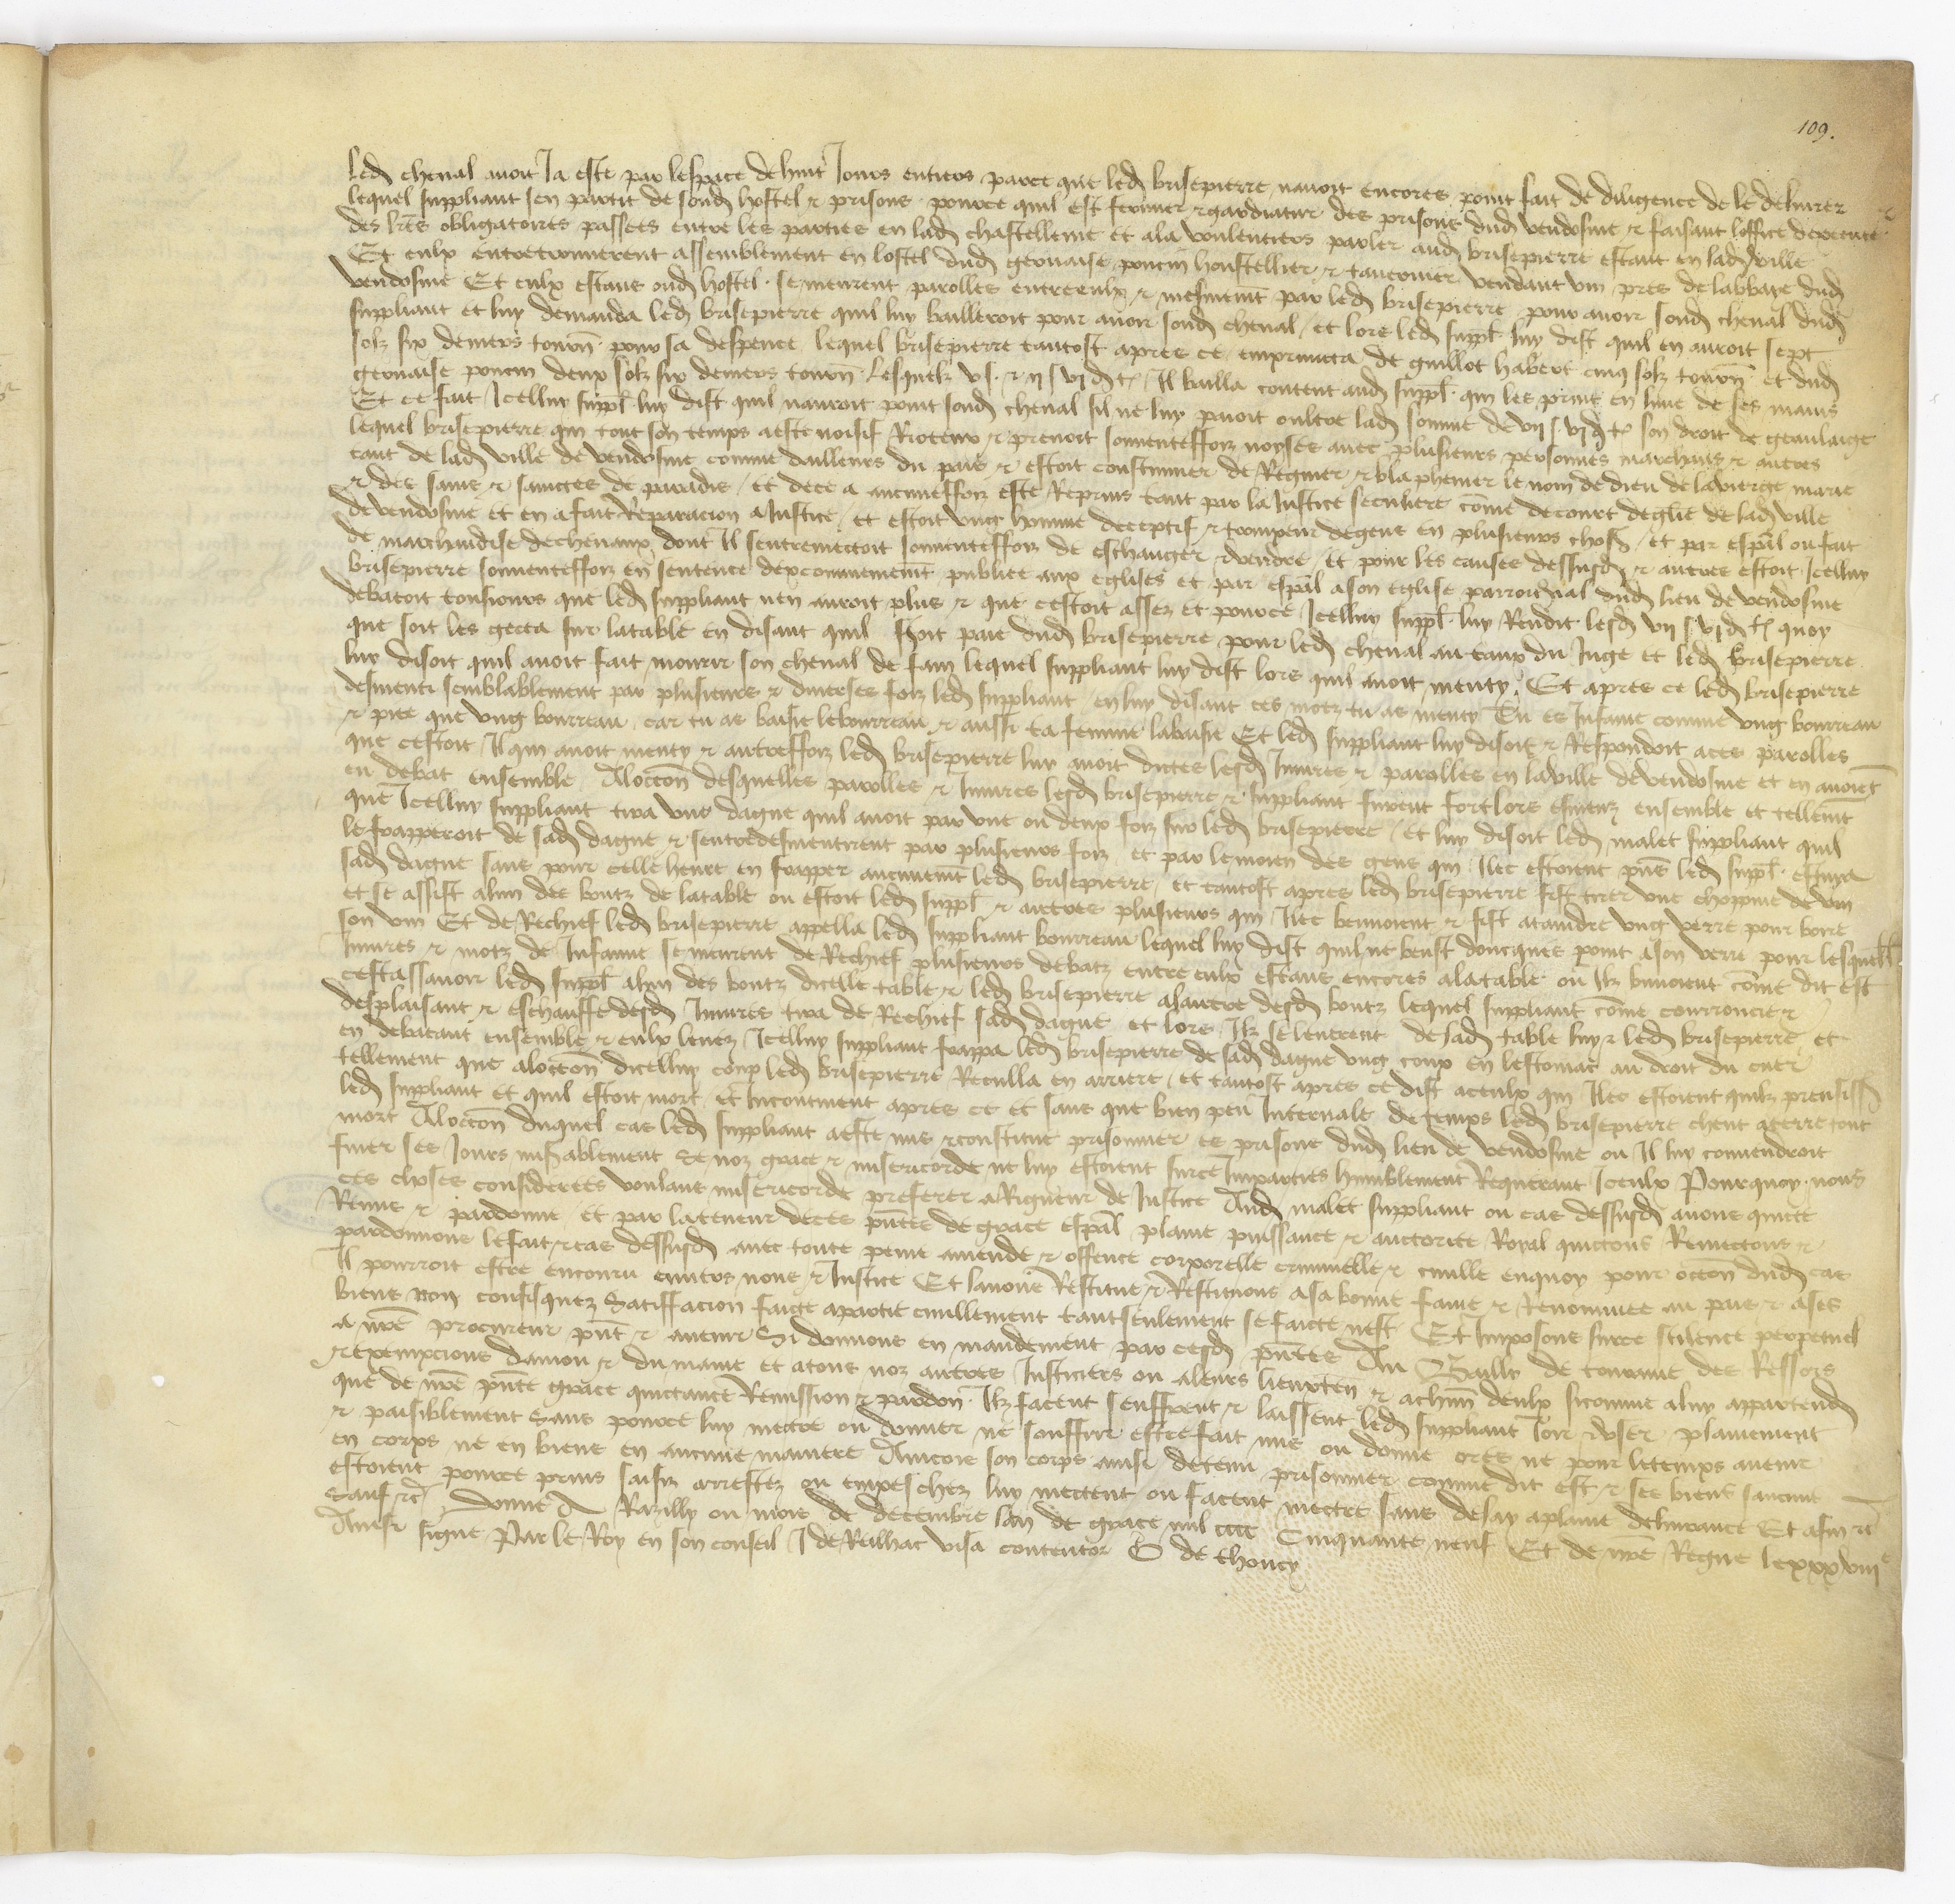 109.
led cheval avoit Ja este par lespace de huit Jours entiers parce que led brisepierre navoit encores point fait de diligence de le delivrer
lequel suppliant sen partit de sond hostel & prisons pource quil est fermier & gardiateur des prisons dud vendosme & faisant loffice dexecute
des lres obligatoires passees entre les parties en lad chastellenie et ala voulentiers parler aud brisepierre estant en lad ville
Et eulx entretrouverent assemblement en lostel dud gervaise poncin houstellier & tavernier vendant vin pres de labbaye dud
vendosme Et eulx estans oud hostel se meurent parolles entreeulx & mesmement par led brisepierre pour avoir sond cheval dud
suppliant et luy demanda led brisepierre quil luy bailleroit pour avoir sond cheval et lors led suppl luy dist quil en auroit sept
solz six deniers tourn pour sa despence lequel brisepierre tantost apres ce emprunta de guillot habert cinq solz tourn et dud
gervaise poncin deux solz six deniers tourn Lesquelz v s & ij s vj d t Il bailla content aud suppl qui les print en lune de ses mains
Et ce fait Icelluy suppl luy dist quil nauroit point sond cheval sil ne luy paioit oultre lad somme de vij s vj d t son droit de geaulaige
lequel brisepierre qui tout son temps a este noisif Rioteux & prenoit souventesfoiz noyses avec plusieurs personnes marchans & autres
tant de lad ville de vendosme comme dailleurs du pais & estoit coustumier de Regnier & blaphemer le nom de dieu de la vierge marie
& des sains & sainctes de paradis et dece a aucunesfoiz este Reprins tant par la Justice seculiere come de court deglise de lad ville
de vendosme et en a fait Reparacion a Justice et estoit ung homme deceptif & trompeur de gens en plusieurs choses et par espal ou fait
de marchandise de chevaux dont Il sentremectoit souventesfoiz de eschanger & vendre Et pour les causes dessusd & autres estoit Icelluy
brisepierre souventesfoiz en sentence dexcommeniement publiee aux eglises et par espal a son eglise parroichial dud lieu de vendosme
debatoit tousiours que led suppliant nen auroit plus & que cestoit assez et pource Icelluy suppl luy Rendit lesd vij s vj d t quoy
que soit les gecta sur la table en disant quil seroit paie dud brisepierre pour led cheval au taux du Juge et led brisepierre
luy disoit quil avoit fait mourir son cheval de fain lequel suppliant luy dist lors quil avoit menty Et apres ce led brisepierre
desmenti semblablement par plusieurs & diverses foiz led suppliant en luy disant ces motz tu as menty Tu es Infame comme ung bourreau
& pire que ung bourreau car tu as baisie le bourreau & aussi ta femme la baisie Et led suppliant luy disoit & Respondoit a ces parolles
que cestoit Il qui avoit menty & autresfoiz led brisepierre luy avoit dictes lesd Iniures & parolles en la ville de vendosme et en avoient
eu debat ensemble Aloccon desquelles parolles & Iniures lesd brisepierre & suppliant furent fort lors esmeuz ensemble et tellemt
que Icelluy suppliant tira une dague quil avoit par une ou deux foiz sur led brisepierre et luy disoit led malet suppliant quil
le frapperoit de sad dague & sentredesmentirent par plusieurs foiz et par le moien des gens qui Ilec estoient pnts led suppl estuya
sad dague sans pour celle heure en frapper aucunemt led brisepierre et tantost apres led brisepierre fist tirer une choppine de vin
et se assist alun des boutz de la table ou estoit led suppl & autres plusieurs qui Ilec beuvoient & fist ataindre ung verre pour boire
son vin Et de Rechief led brisepierre appella led suppliant bourreau lequel luy dist quil ne beust doncques point a son verre pour lesquell
Iniures & motz de Infame se meurent de Rechief plusieurs debatz entre eulx estans encores a la table ou Ilz buvoient come dit est
cestassavoir led suppl alun des boutz dicelle table & led brisepierre a lautre desd boutz lequel suppliant come courroucie &
desplaisant & eschauffe desd Iniures tira de Rechief sad dague et lors Ilz se leverent de sad table luy & led brisepierre et
en debatant ensemble & eulx levez Icelluy suppliant frappa led brisepierre de sad dague ung coup en lestomac au droit du cuer
tellement que aloccon dicelluy coup led brisepierre Reculla en arriere et tantost apres ce dist a ceulx qui Ilec estoient quilz prensissent
led suppliant et quil estoit mort et Incontinent apres ce et sans que bien peu Intervale de temps led brisepierre cheut a terre tout
mort Aloccon duquel cas led suppliant a este mis & constitue prisonnier es prisons dud lieu de vendosme ou Il luy conviendroit
finer ses Jours miserablement se noz grace & misericorde ne luy estoient surce Imparties humblement Requerant Iceulx Pourquoy nous
ces choses considerees voulans misericorde preferer a Rigueur de Justice Aud malet suppliant ou cas dessusd avons quicte
Remis & pardonne et par la teneur de ces pntes de grace espal plaine puissance & auctorite Royal quictons Remectons &
pardonnons le fait & cas dessusd avec toute peine amende & offence corporelle criminelle & civille enquoy pour occon dud cas
Il pourroit estre encouru envers nous & Justice Et lavons Restitue & Restituons a sa bonne fame & Renommee au pais & a ses
biens non confisquez Satiffacion faicte a partie civillement tant seulement se faicte nest Et Imposons surce scilence perpetuel
a nre procureur pnt & avenir Si donnons en mandement par cesd pntes Au Bailly de touraine des Ressors
& exempcions daniou & du maine et a tous noz autres Justiciers ou a leurs lieuxten & a chun deulx sicomme a luy appartendra
que de nre pnte grace quictance Remission & pardon Ilz facent seuffrent & laissent led suppliant Joir & user plainement
& paisiblement Sans pource luy mectre ou donner ne souffrir estre fait mis ou donne ores ne pour le temps avenir
en corps ne en biens en aucune maniere Aincois son corps ainsi detenu prisonnier comme dit est & ses biens saucuns
estoient pource prins saisiz arrestez ou empeschez luy mectent ou facent mectre sans delay a plaine delivrance Et afin &c
Sauf &c Donne A Razilly ou mois de decembre lan de grace mil cccc Cinquante neuf Et de nre Regne le xxxviii e
Ainsi signe Par le Roy en son conseil J de Reilhac visa contentor E de thoucy